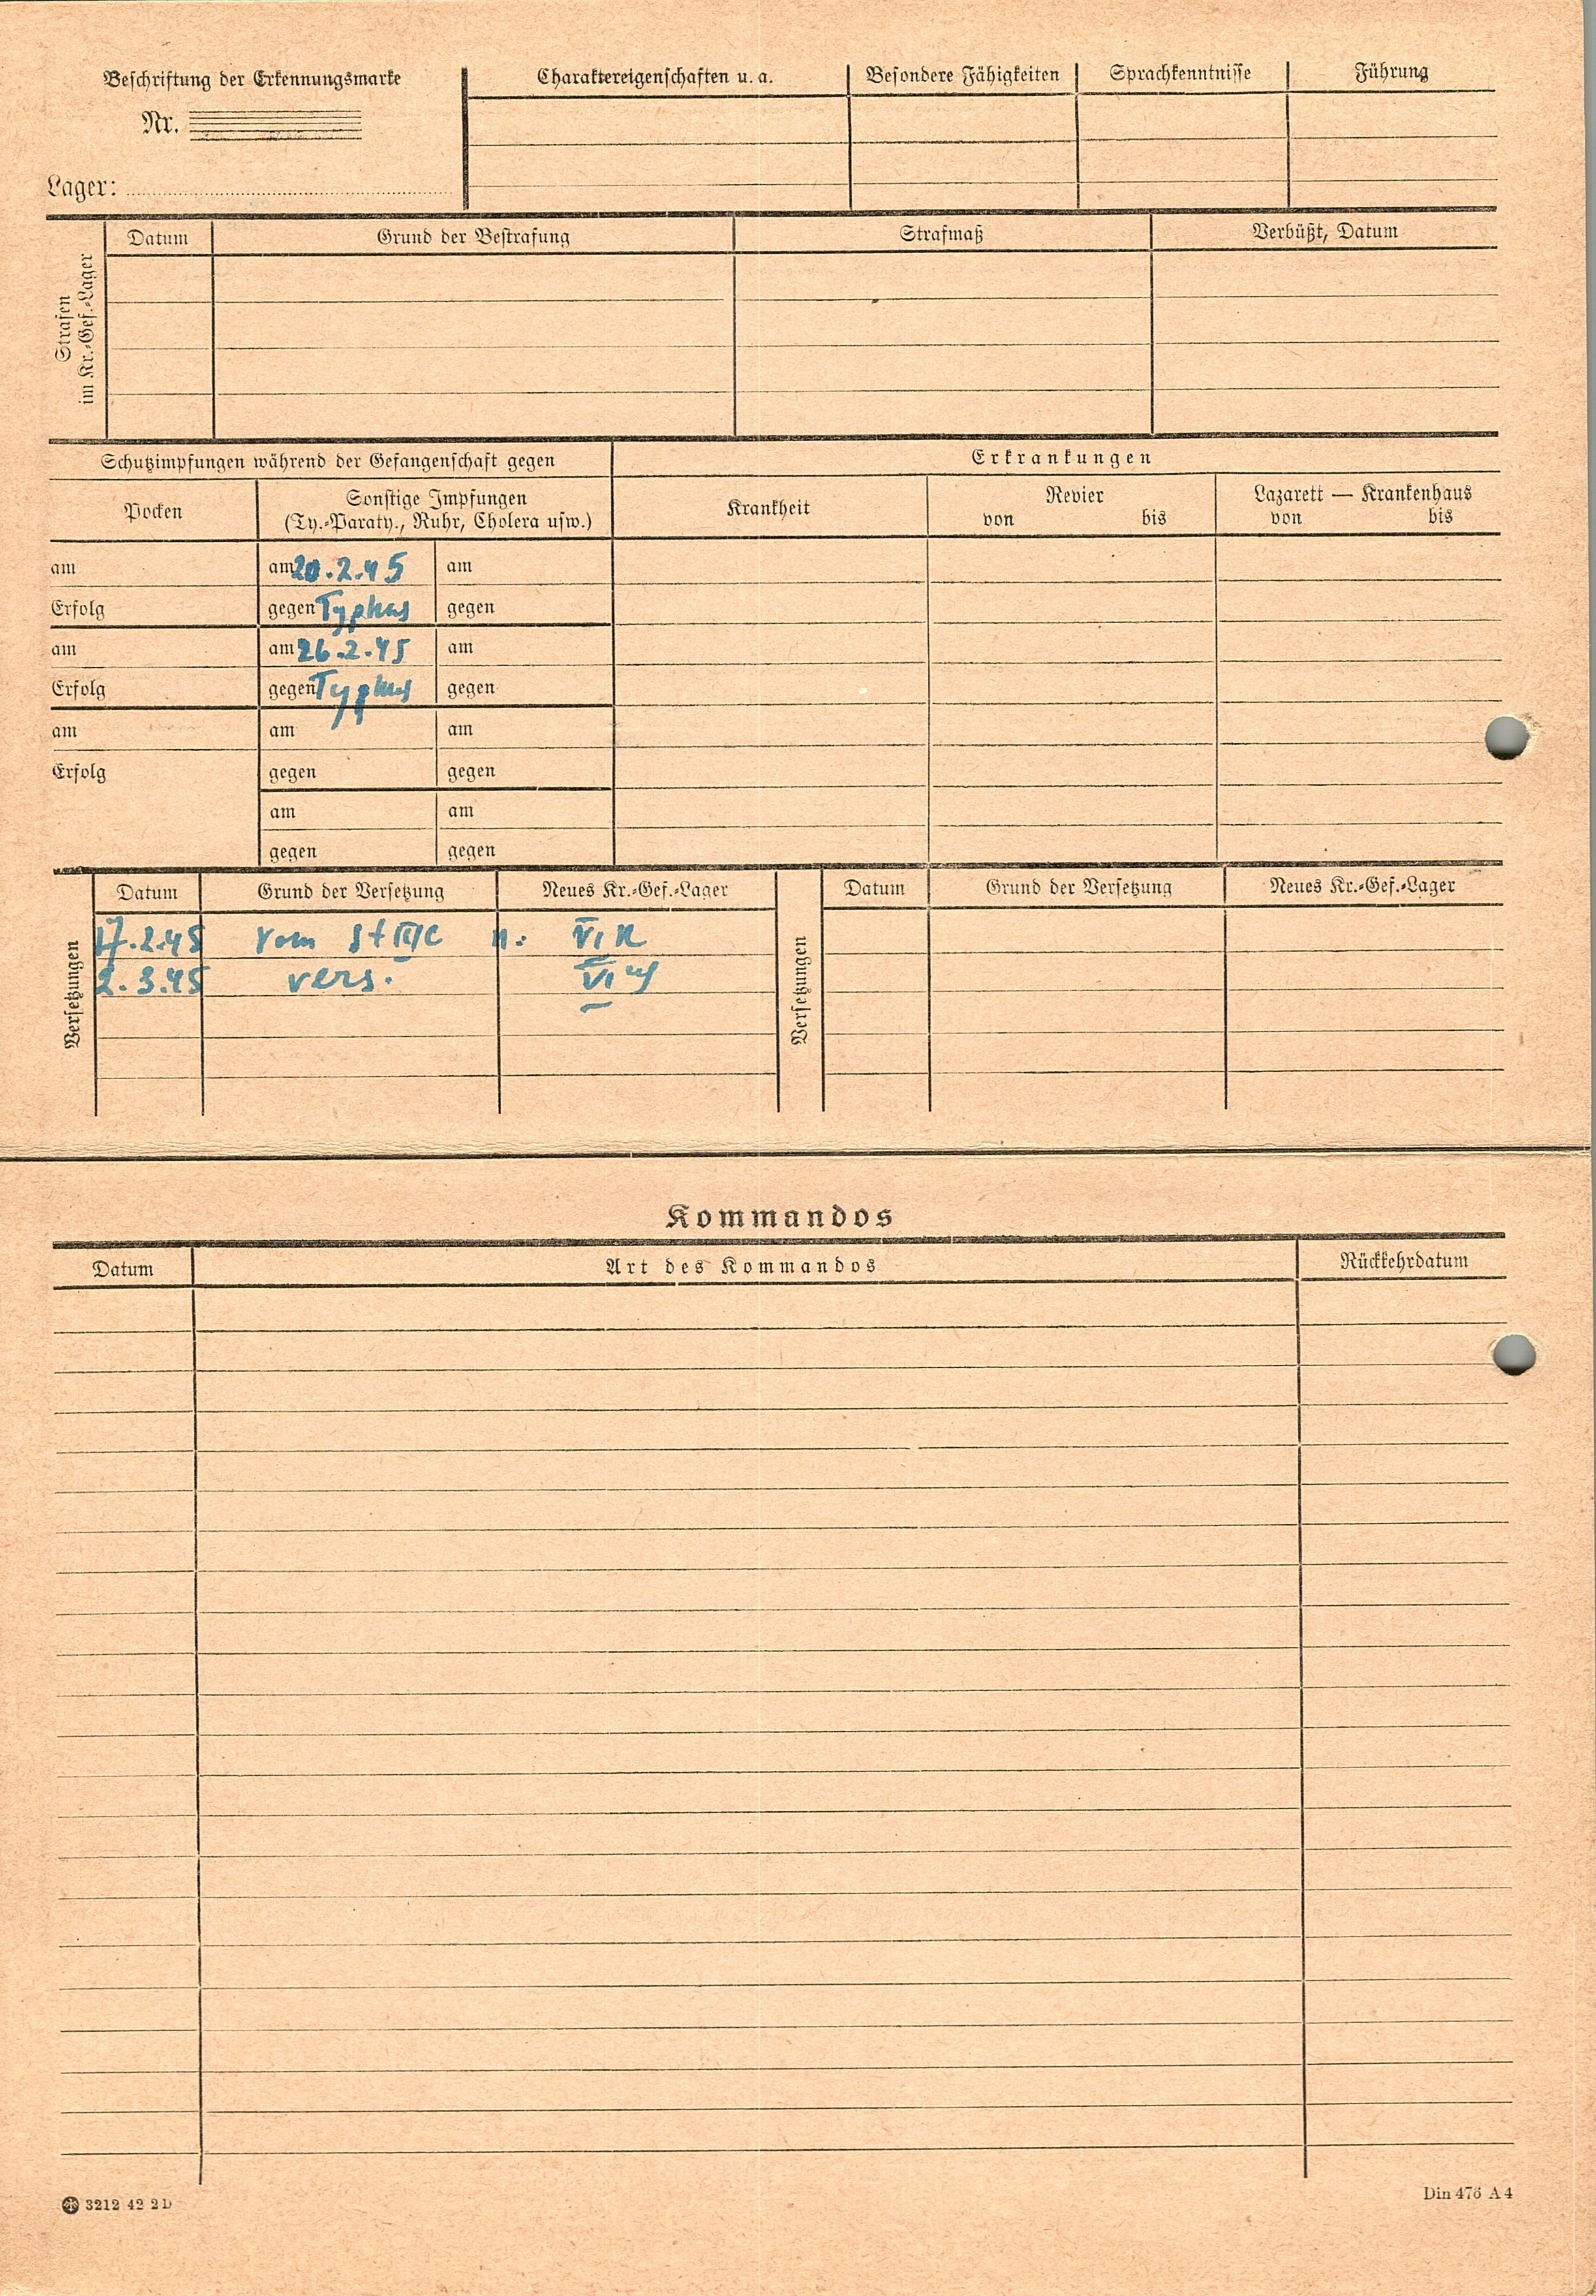 Beschriftung der Erkennungsmarke
Nr.
Lager:
Charaktereigenschaften u. a. Besondere Fähigkeiten Sprachkenntnisse Führung
Strafen
im Kr.-Gef.-Lager
Datum Grund der Bestrafung Strafmaß Verbüßt, Datum
Schutzimpfungen während der Gefangenschaft gegen
Erkrankungen
Pocken
Sonstige Impfungen
(Ty.-Paraty., Ruhr, Cholera usw.)
Krankheit
Revier
von bis
Lazarett — Krankenhaus
von bis
am am 20.2.45 am
Erfolg gegen Typhus gegen
am am 26.2.45 am
Erfolg gegen Typhus gegen
am am am
Erfolg gegen gegen
am am
gegen gegen
Versetzungen
Datum Grund der Versetzung Neues Kr.-Gef.-Lager
17.2.45 vom St III C n. VI K
2.3.45 vers. VI
Versetzungen
Datum Grund der Versetzung Neues Kr.-Gef.-Lager
Kommandos
Datum Art des Kommandos Rückkehrdatum
3212 42 2D
Din 476 A 4